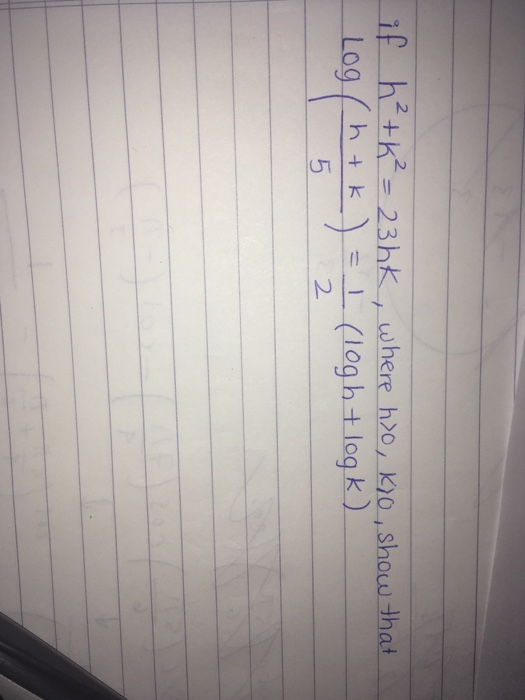 if h² + k² = 23hk, where h>0, k>0, show that
Log ( h + k / 5 ) = 1/2 (log h + log k)